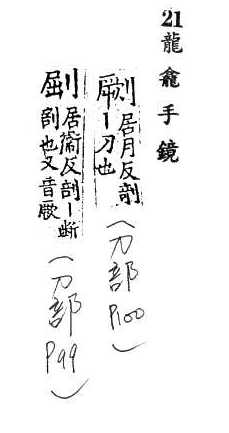 21 龍龕手鏡
劂 居月反剞
丨刀也
(刀部 P100)
㓸 居衛反剞丨断
剞也又音厥
(刀部 P99)